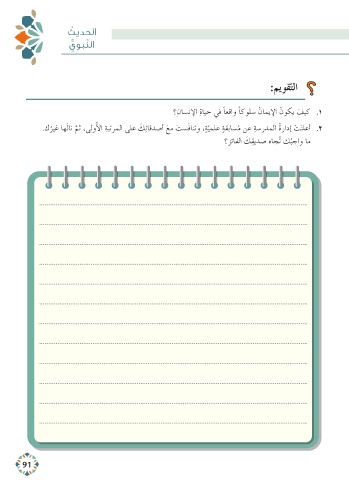 الحديثُ
النّبويُّ
؟ التّقويم:
١. كيف يكونُ الإيمانُ سلوكاً واقعاً في حياةِ الإنسانِ؟
٢. أعلنَتْ إدارةُ المدرسةِ عن مُسابقةٍ علميّةٍ، وتنافسْتَ معَ أصدقائِكَ على المرتبةِ الأُولى، ثمّ نالَها غيرُك.
ما واجبُك تُجاه صديقِكَ الفائز؟
91